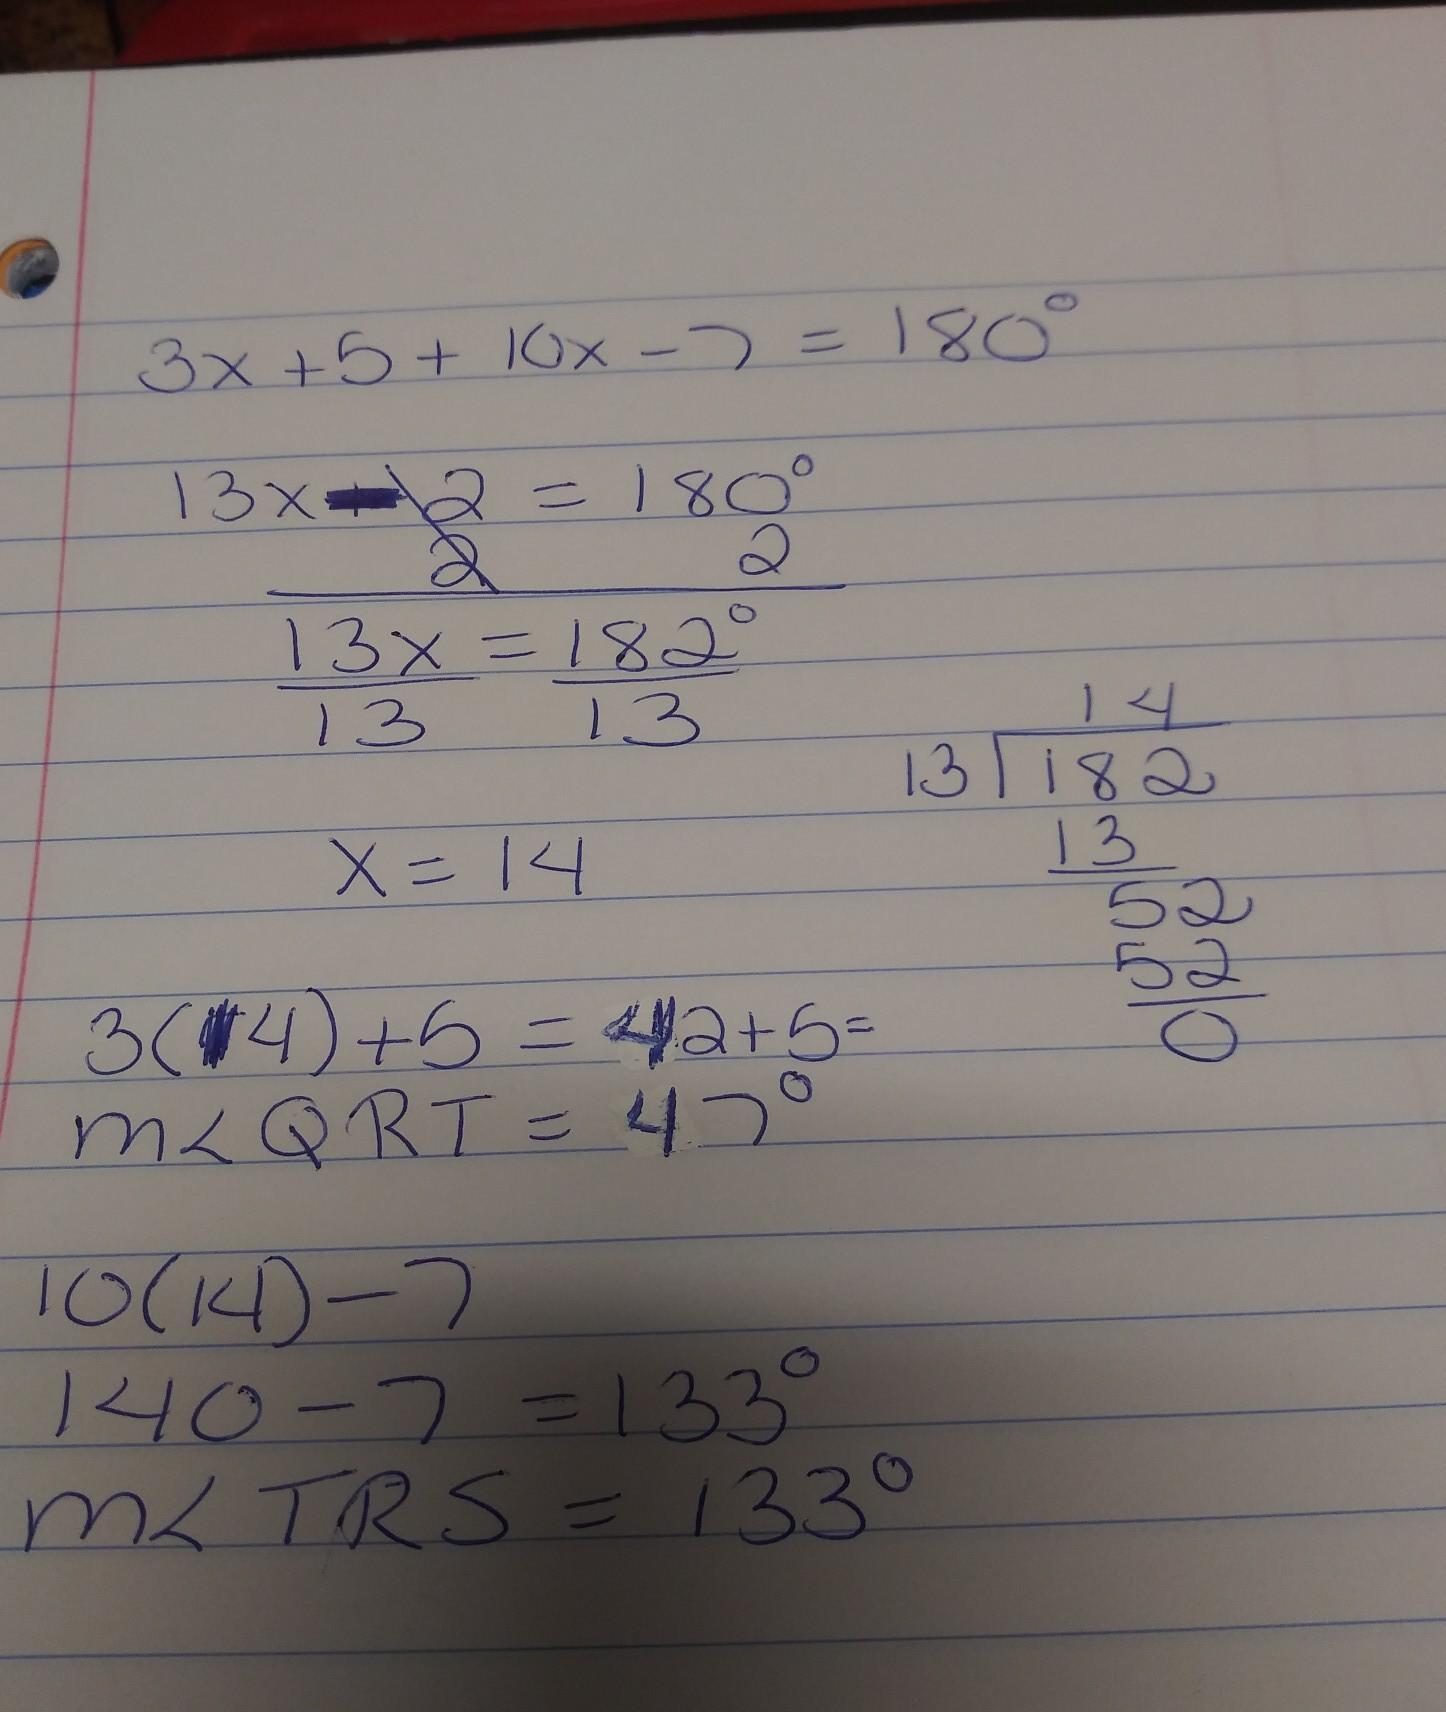 3x + 5 + 10x - 7 = 180°
13x - 2 = 180°
2 2
13x = 182°
13 13
14
13 182
13
x = 14
52
52
0
3(14) + 5 = 42 + 5 =
m< QRT = 47°
10(14) - 7
140 - 7 = 133°
m< TRS = 133°